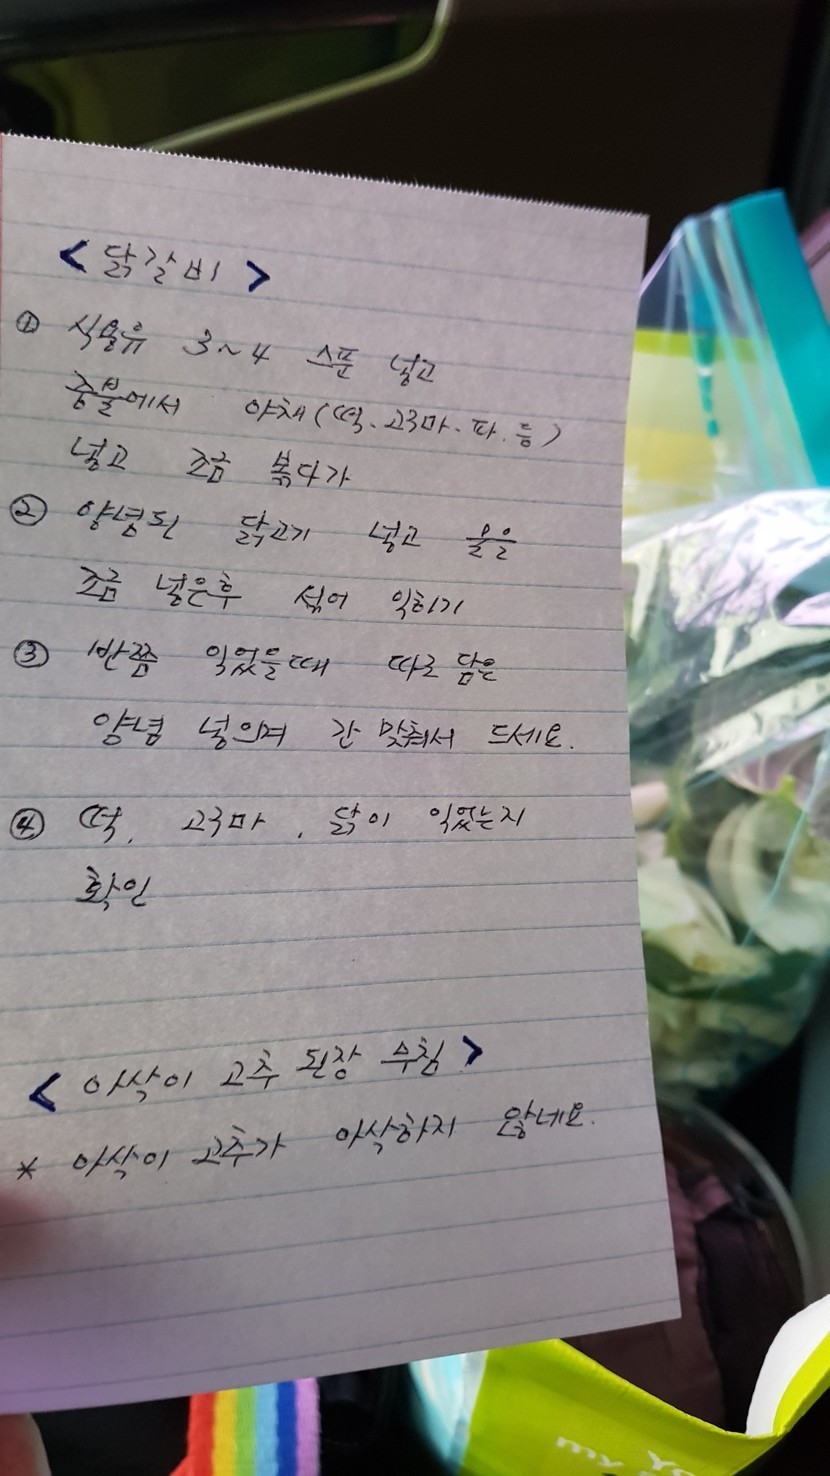 < 닭갈비 >
① 식용유 3~4 스푼 넣고
중불에서 야채(떡.고구마.파.등)
넣고 조금 볶다가
② 양념된 닭고기 넣고 물을
조금 넣은후 섞어 익히기
③ 반쯤 익었을때 따로 담은
양념 넣으며 간 맞춰서 드세요.
④ 떡, 고구마, 닭이 익었는지
확인
< 아삭이 고추 된장 무침 >
* 아삭이 고추가 아삭하지 않네요.
my